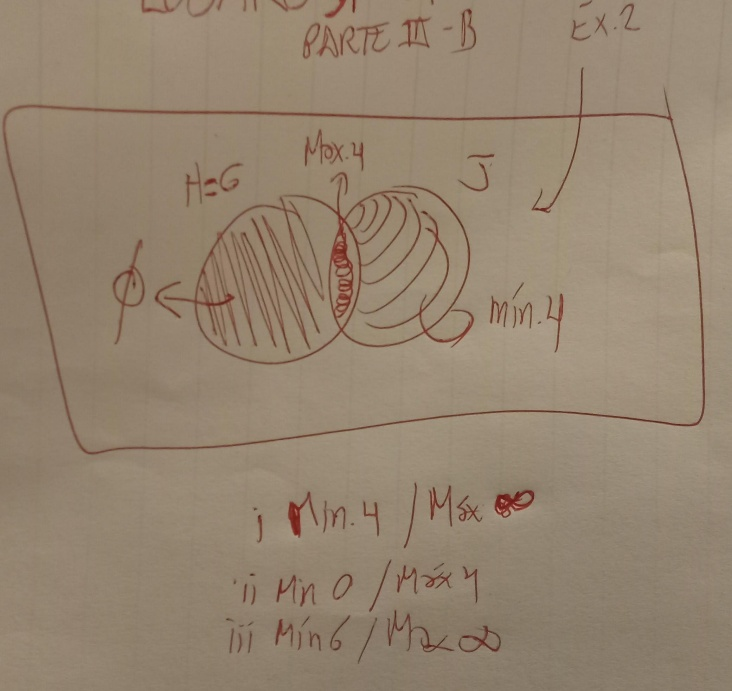 PARTE III-B
Ex.2
Max.4
H=6
J
∅
mín.4
i Mín.4 / Máx ∞
ii Mn 0 / Máx 4
iii Mín 6 / Max ∞